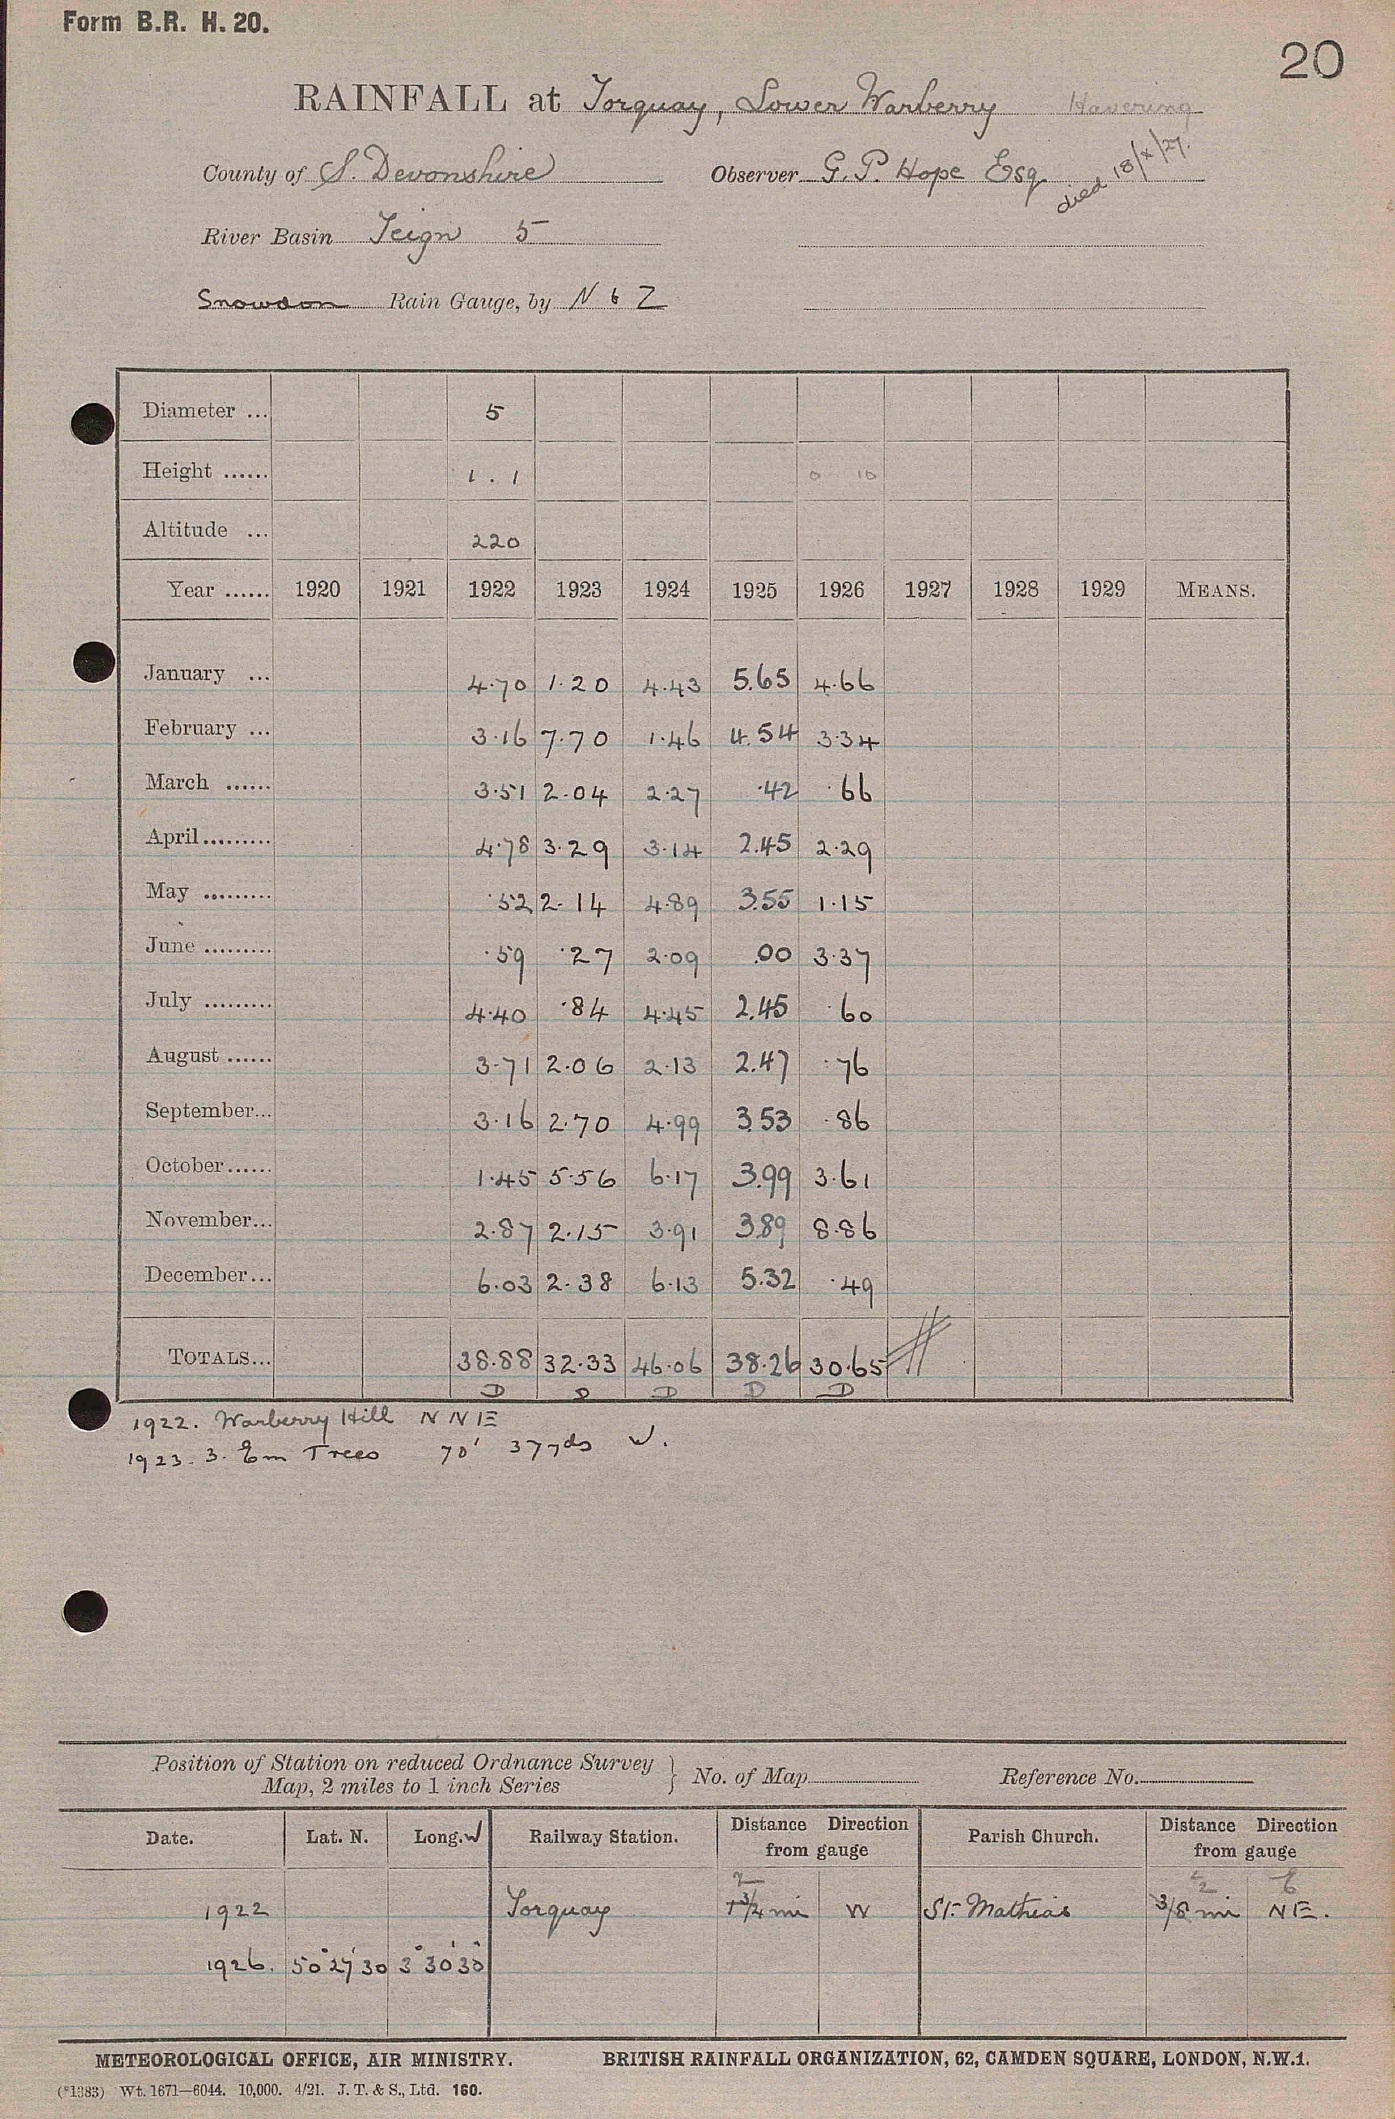 Form B.R. H. 20.
20
RAINFALL at Torquay, Lower Warberry Havering
County of S. Devonshire Observer G. P. Hope Esq died 18/X/27.
River Basin Teign 5
Snowdon Rain Gauge, by N & Z
Diameter ... 5
Height ...... 1 . 1 0 10
Altitude ... 220
Year ...... 1920 1921 1922 1923 1924 1925 1926 1927 1928 1929 MEANS.
January ... 4.70 1.20 4.43 5.65 4.66
February ... 3.16 7.70 1.46 4.54 3.34
March ...... 3.51 2.04 2.27 .42 .66
April ......... 4.78 3.29 3.14 2.45 2.29
May ......... .52 2.14 4.89 3.55 1.15
June ......... .59 .27 2.09 .00 3.37
July ......... 4.40 .84 4.45 2.45 .60
August ...... 3.71 2.06 2.13 2.47 .76
September... 3.16 2.70 4.99 3.53 .86
October...... 1.45 5.56 6.17 3.99 3.61
November... 2.87 2.15 3.91 3.89 8.86
December... 6.03 2.38 6.13 5.32 .49
TOTALS... 38.88 32.33 46.06 38.26 30.65
D D D D
1922. Warberry Hill N N E
1923. 3. Em Trees 70' 37yds W.
Position of Station on reduced Ordnance Survey Map, 2 miles to 1 inch Series } No. of Map Reference No.
Date. Lat. N. Long. W Railway Station. Distance Direction from gauge Parish Church. Distance Direction from gauge
1922 Torquay 3/4 mi W St. Mathias 3/8 mi NE.
1926. 50° 27' 30 3° 30' 30"
METEOROLOGICAL OFFICE, AIR MINISTRY. BRITISH RAINFALL ORGANIZATION, 62, CAMDEN SQUARE, LONDON, N.W.1.
(*1383) Wt. 1671—6044. 10,000. 4/21. J. T. & S., Ltd. 160.